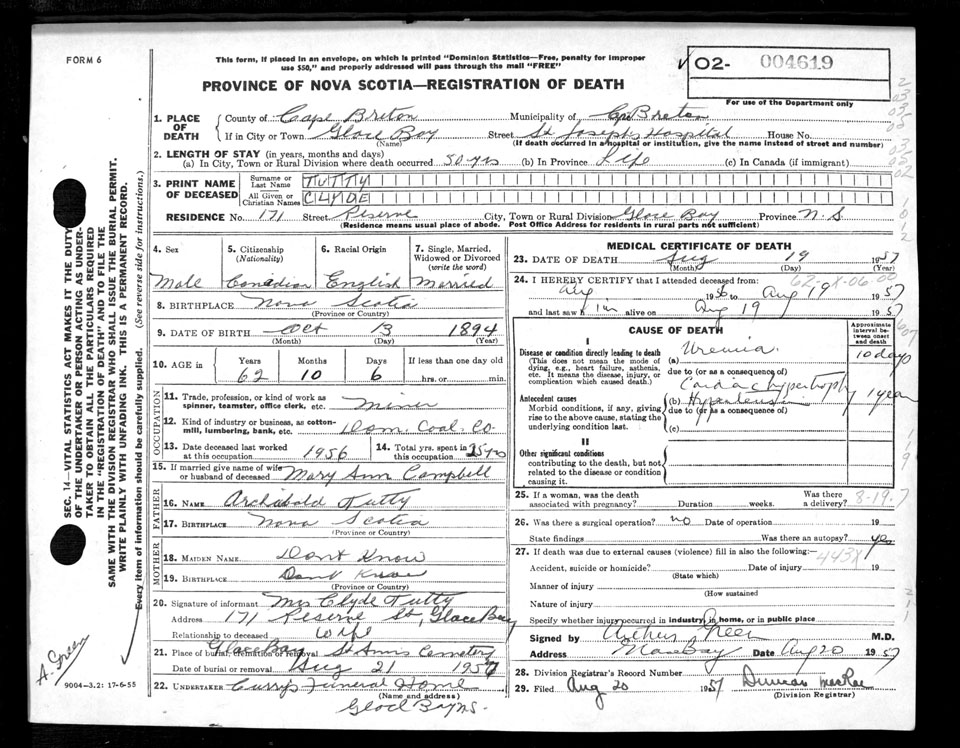 FORM 6
This form, if placed in an envelope, on which is printed "Dominion Statistics—Free, penalty for improper
use $50," and properly addressed will pass through the mail "FREE"
PROVINCE OF NOVA SCOTIA—REGISTRATION OF DEATH
✓ 02- 004619
For use of the Department only
1. PLACE OF DEATH
County of Cape Breton Municipality of Cape Breton
If in City or Town Glace Bay Street St Josephs Hospital House No.
(Name) (If death occurred in a hospital or institution, give the name instead of street and number)
2. LENGTH OF STAY (in years, months and days)
(a) In City, Town or Rural Division where death occurred 50 yrs (b) In Province Life (c) In Canada (if immigrant)
3. PRINT NAME OF DECEASED
Surname or Last Name TUTTY
All Given or Christian Names CLYDE
RESIDENCE No. 171 Street Reserve City, Town or Rural Division Glace Bay Province N.S.
(Residence means usual place of abode. Post Office Address for residents in rural parts not sufficient)
4. Sex Male
5. Citizenship (Nationality) Canadian
6. Racial Origin English
7. Single, Married, Widowed or Divorced (write the word) Married
8. BIRTHPLACE Nova Scotia
(Province or Country)
9. DATE OF BIRTH Oct 13 1894
(Month) (Day) (Year)
10. AGE in Years 62 Months 10 Days 6 If less than one day old hrs. or min.
OCCUPATION
11. Trade, profession, or kind of work as spinner, teamster, office clerk, etc. Miner
12. Kind of industry or business, as cotton-mill, lumbering, bank, etc. Dom. Coal. Co.
13. Date deceased last worked at this occupation 1956
14. Total yrs. spent in this occupation
15. If married give name of wife or husband of deceased Mary Ann Campbell
FATHER
16. NAME Archibald Tutty
17. BIRTHPLACE Nova Scotia
(Province or Country)
MOTHER
18. MAIDEN NAME Dont Know
19. BIRTHPLACE Dont Know
(Province or Country)
20. Signature of informant Mrs Clyde Tutty
Address 171 Reserve St, Glace Bay
Relationship to deceased wife
21. Place of burial, cremation or removal Glace Bay St Anns Cemetery
Date of burial or removal Aug 21 1957
22. UNDERTAKER Currys Funeral Home
(Name and address)
Glace Bay NS.
MEDICAL CERTIFICATE OF DEATH
23. DATE OF DEATH Aug 19 1957
(Month) (Day) (Year)
24. I HEREBY CERTIFY that I attended deceased from:
1956 to Aug 19 1957
and last saw him alive on Aug 19 1957
CAUSE OF DEATH
Approximate interval between onset and death
I
Disease or condition directly leading to death
(This does not mean the mode of dying, e.g., heart failure, asthenia, etc. It means the disease, injury, or complication which caused death.)
(a) Uremia 10 days
due to (or as a consequence of)
Cardiac hypertrophy
Antecedent causes
Morbid conditions, if any, giving rise to the above cause, stating the underlying condition last.
(b) Hypertension 1 year
due to (or as a consequence of)
(c)
II
Other significant conditions
contributing to the death, but not related to the disease or condition causing it.
25. If a woman, was the death associated with pregnancy? Duration weeks. Was there a delivery?
8-19-7
26. Was there a surgical operation? no Date of operation 19
State findings Was there an autopsy? yes
27. If death was due to external causes (violence) fill in also the following:—
443X
Accident, suicide or homicide? Date of injury 19
(State which)
Manner of injury
(How sustained
Nature of injury
Specify whether injury occurred in industry, in home, or in public place
Signed by Arthur M.D.
Address Glace Bay Date Aug 20 1957
28. Division Registrar's Record Number
29. Filed Aug 20 1957 Duncan
(Division Registrar)
SEC. 14—VITAL STATISTICS ACT MAKES IT THE DUTY
OF THE UNDERTAKER OR PERSON ACTING AS UNDER-
TAKER TO OBTAIN ALL THE PARTICULARS REQUIRED
IN THE "REGISTRATION OF DEATH" AND TO FILE THE
SAME WITH THE DIVISION REGISTRAR WHO SHALL ISSUE THE BURIAL PERMIT.
WRITE PLAINLY WITH UNFADING INK. THIS IS A PERMANENT RECORD.
Every item of information should be carefully supplied. (See reverse side for instructions.)
9004-3.2: 17-6-55